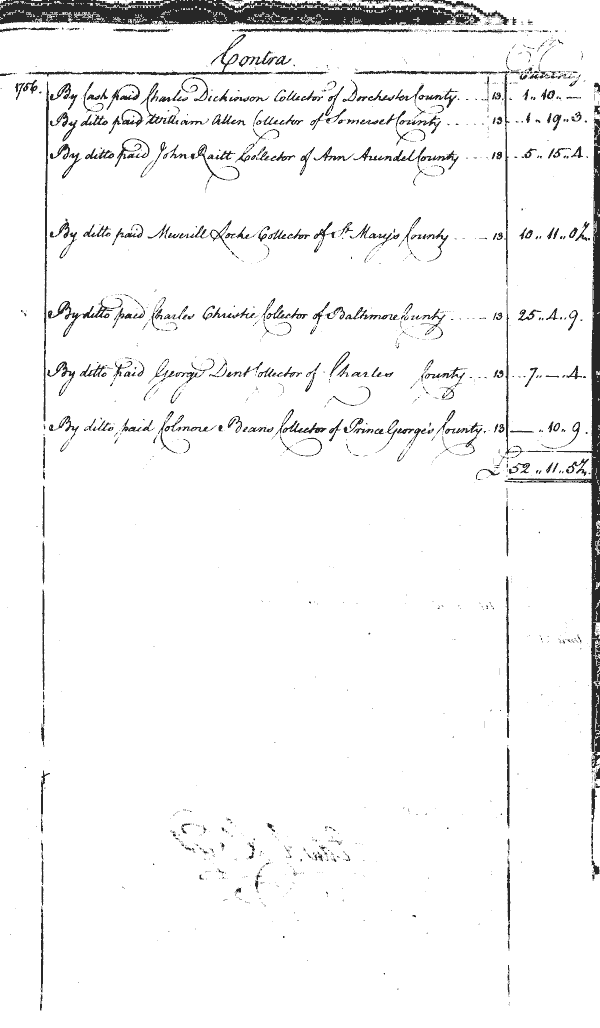 Contra.
Currency
1756. By Cash paid Charles Dickinson Collector of Dorchester County 13 1 .. 10 .. —
By ditto paid William Allen Collector of Somerset County 13 1 .. 19 .. 3
By ditto paid John Raitt Collector of Ann Arundel County 13 5 .. 15 .. 4
By ditto paid Meverill Locke Collector of St. Mary's County 13 10 .. 11 .. 0½
By ditto paid Charles Christie Collector of Baltimore County 13 25 .. 4 .. 9
By ditto paid George Dent Collector of Charles County 13 7 .. — .. 4
By ditto paid Colmore Beans Collector of Prince George's County 13 — .. 10 .. 9
£ 52 .. 11 .. 5½